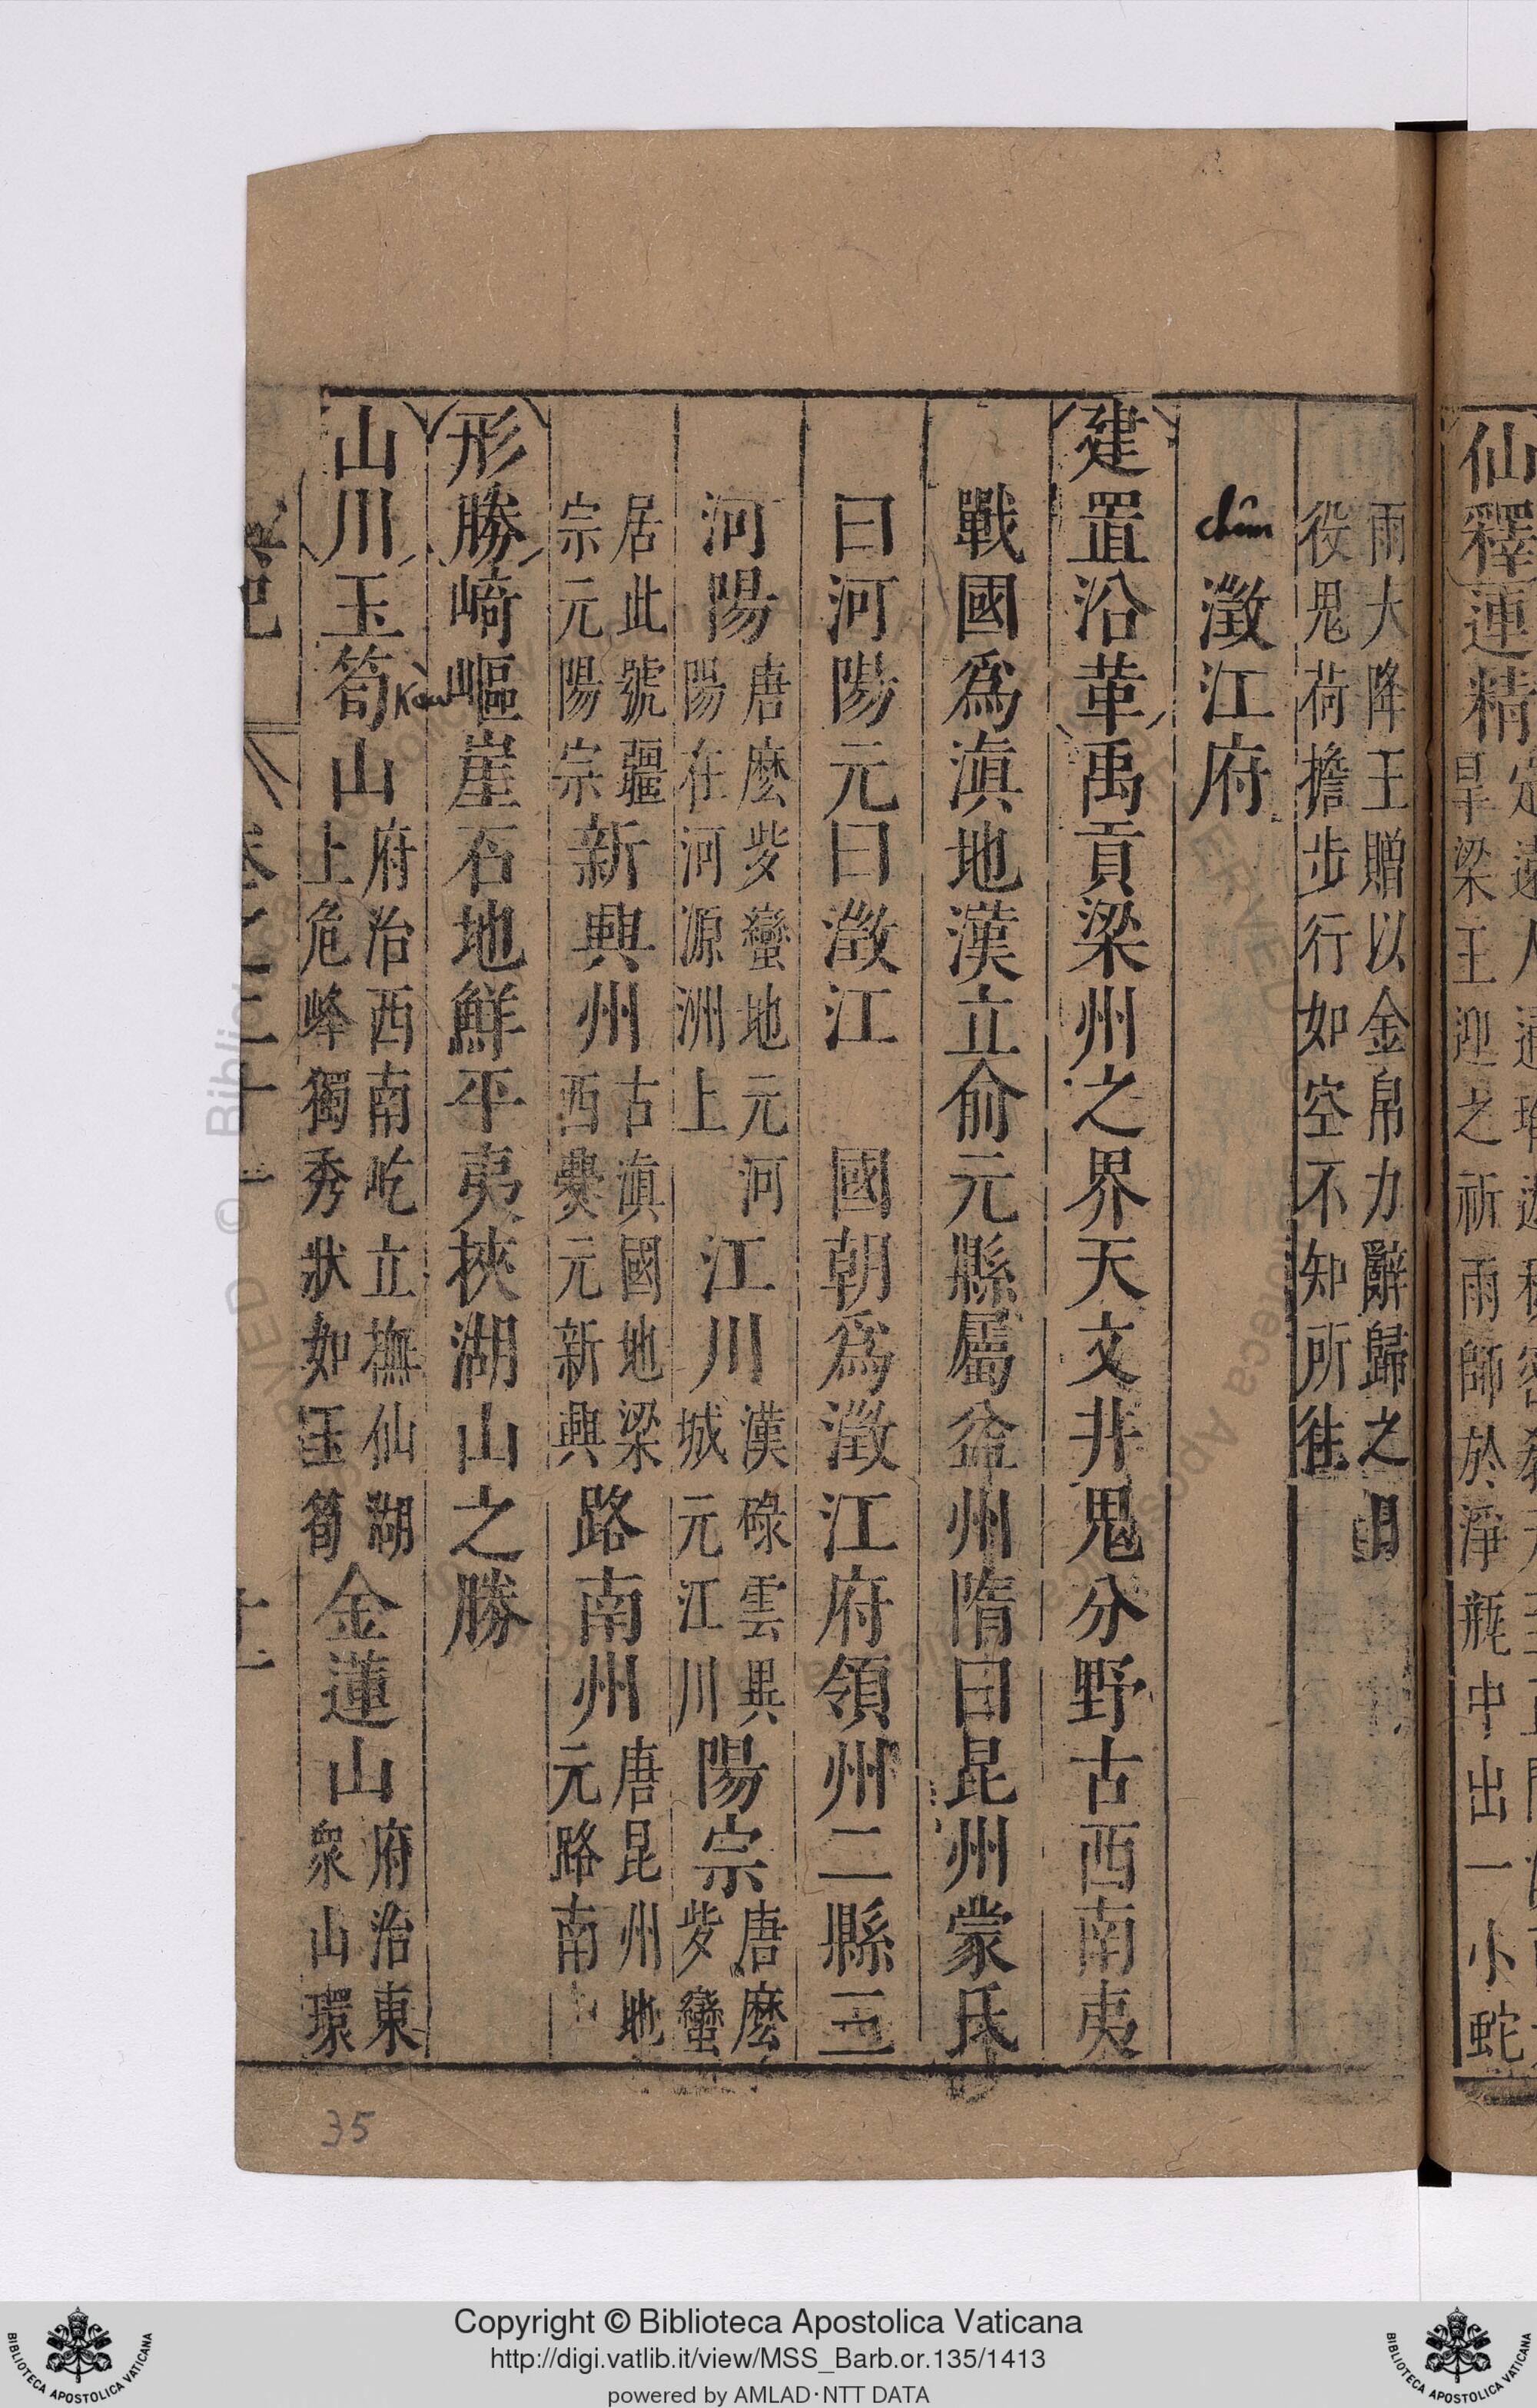 仙釋蓮精
旱梁王迎之祈雨師於淨瓶中出一小蛇
雨大降王贈以金帛力辭歸之
役鬼荷擔步行如空不知所往
chîm
澂江府
建置沿革禹貢梁州之界天文井鬼分野古西南夷
戰國為滇地漢立俞元縣屬益州隋曰昆州蒙氏
曰河陽元曰澂江 國朝為澂江府領州二縣三
河陽唐麽些蠻地元河陽在河源洲上江川漢碌雲異城元江川陽宗唐麽些蠻
居此號疆宗元陽宗新興州古滇國地梁西爨元新興路南州唐昆州地元路南
形勝崎嶇崖石地鮮平夷挾湖山之勝
山川玉筍山府治西南屹立撫仙湖上危峰獨秀狀如玉筍金蓮山府治東眾山環
Kow
35
Copyright © Biblioteca Apostolica Vaticana
http://digi.vatlib.it/view/MSS_Barb.or.135/1413
powered by AMLAD·NTT DATA
BIBLIOTECA APOSTOLICA VATICANA
BIBLIOTECA APOSTOLICA VATICANA